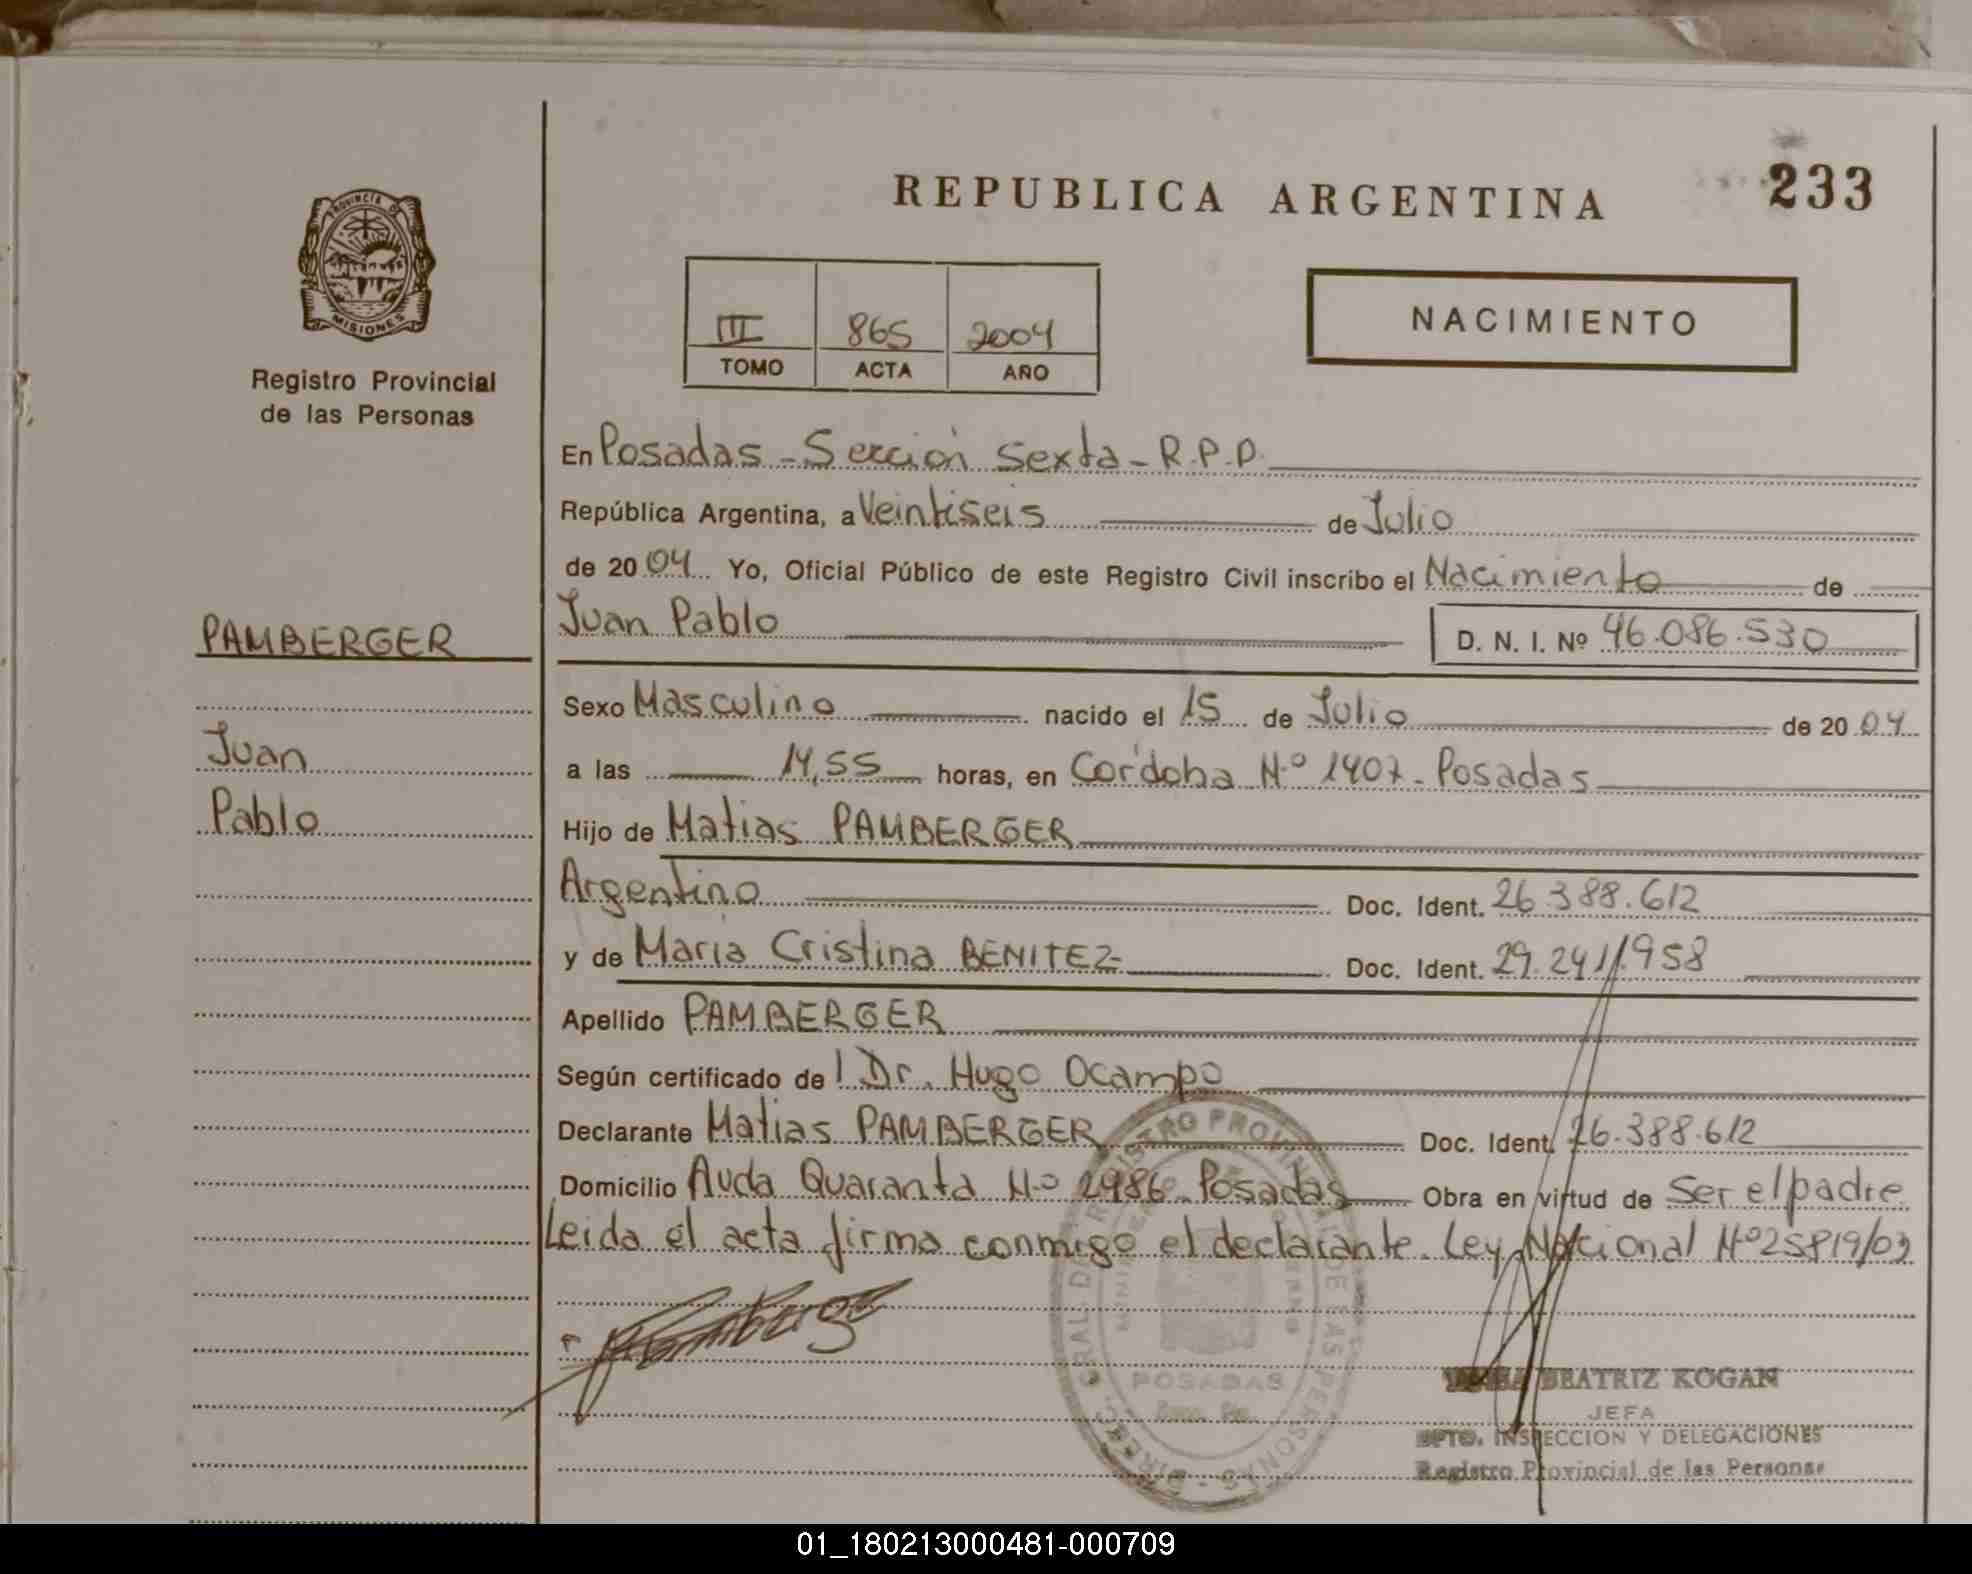 REPUBLICA ARGENTINA
233
PROVINCIA DE
MISIONES
Registro Provincial
de las Personas
III 865 2004
TOMO ACTA AÑO
NACIMIENTO
En Posadas - Sección Sexta - R.P.P.
República Argentina, a Veintiseis de Julio
de 20 04 Yo, Oficial Público de este Registro Civil inscribo el Nacimiento de
Juan Pablo
D. N. I. Nº 46.086.530
PAMBERGER
Juan
Pablo
Sexo Masculino nacido el 15 de Julio de 20 04
a las 14,55 horas, en Córdoba N.º 1407 - Posadas
Hijo de Matias PAMBERGER
Argentino Doc. Ident. 26.388.612
y de Maria Cristina BENITEZ Doc. Ident. 29.241.958
Apellido PAMBERGER
Según certificado de l Dr. Hugo Ocampo
Declarante Matias PAMBERGER Doc. Ident. 26.388.612
Domicilio Avda Quaranta N.º 2986 - Posadas Obra en virtud de Ser el padre
Leida el acta firma conmigo el declarante. Ley Nacional Nº 25819/03
POSADAS
BEATRIZ KOGAN
JEFA
DPTO. INSPECCION Y DELEGACIONES
Registro Provincial de las Personas
01_180213000481-000709